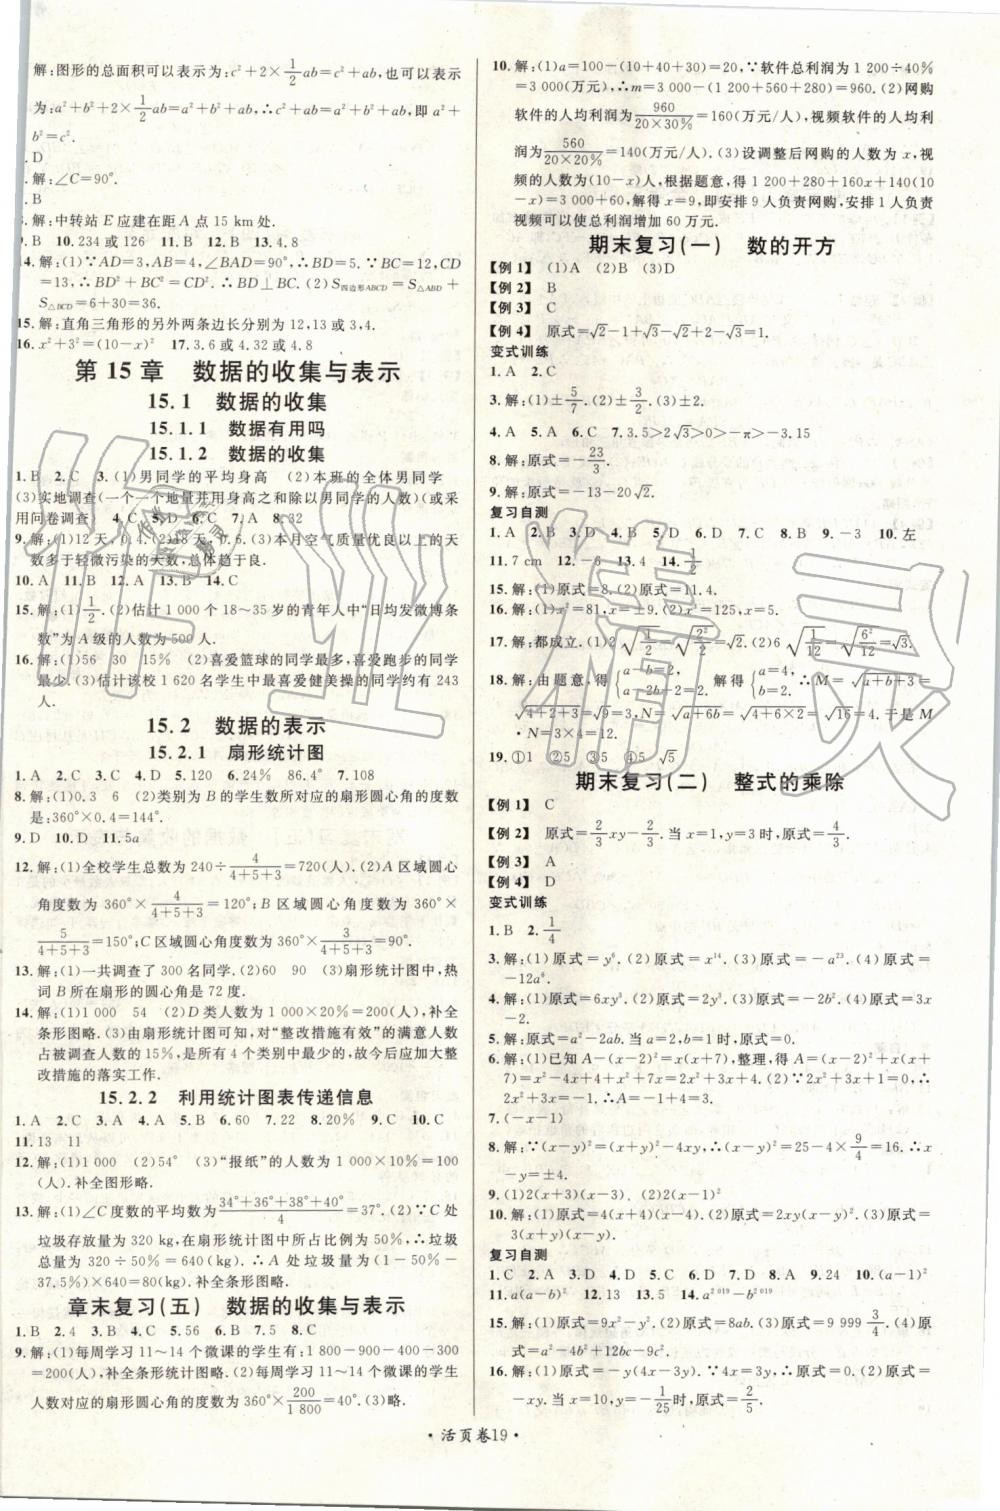 解:图形的总面积可以表示为:c²+2×1/2ab=c²+ab,也可以表示
为:a²+b²+2×1/2ab=a²+b²+ab,∴c²+ab=a²+b²+ab,即 a²+
b²=c².
. D
.解:∠C=90°.
. B
.解:中转站 E 应建在距 A 点 15 km处.
9. B 10. 234 或 126 11. B 12. B 13. 4.8
14.解:(1)∵AD=3,AB=4,∠BAD=90°,∴BD=5.又BC=12,CD
=13,∴BD²+BC²=CD²,∴BD⊥BC. (2)S四边形ABCD=S△ABD+
S△BCD=6+30=36.
15.解:直角三角形的另外两条边长分别为 12,13 或 3,4.
16. x²+3²=(10-x)² 17. 3.6 或 4.32 或 4.8
第 15 章 数据的收集与表示
15.1 数据的收集
15.1.1 数据有用吗
15.1.2 数据的收集
1. B 2. C 3. (1)男同学的平均身高 (2)本班的全体男同学
(3)实地调查(一个一个地量并用身高之和除以男同学的人数)(或采
用问卷调查) 4. C 5. D 6. C 7. A 8. 32
9.解:(1)12 天,0.4. (2)18 天,0.6. (3)本月空气质量优良以上的天
数多于轻微污染的天数,总体趋于良.
10. A 11. B 12. B 13. B 14. C
15.解:(1)1/2. (2)估计 1 000 个 18~35 岁的青年人中“日均发微博条
数”为 A 级的人数为 500 人.
16.解:(1)56 30 15% (2)喜爱篮球的同学最多,喜爱跑步的同学最
少. (3)估计该校 1 620 名学生中最喜爱健美操的同学约有 243
人.
15.2 数据的表示
15.2.1 扇形统计图
1. A 2. C 3. C 4. D 5. 120 6. 24% 86.4° 7. 108
8.解:(1)0.3 6 (2)类别为 B 的学生数所对应的扇形圆心角的度数
是:360°×0.4=144°.
9. D 10. D 11. 5a
12.解:(1)全校学生总数为 240÷4/(4+5+3)=720(人). (2)A 区域圆心
角度数为 360°×4/(4+5+3)=120°;B 区域圆心角度数为 360°×
5/(4+5+3)=150°;C 区域圆心角度数为 360°×3/(4+5+3)=90°.
13.解:(1)一共调查了 300 名同学. (2)60 90 (3)扇形统计图中,热
词 B 所在扇形的圆心角是 72 度.
14.解:(1)1 000 54 (2)D 类人数为 1 000×20%=200(人),补全
条形图略. (3)由扇形统计图可知,对“整改措施有效”的满意人数
占被调查人数的 15%,是所有 4 个类别中最少的,故今后应加大整
改措施的落实工作.
15.2.2 利用统计图表传递信息
1. A 2. C 3. D 4. A 5. B 6. 60 7. 22 8. 20% 9. C 10. C
11. 13 11
12.解:(1)1 000 (2)54° (3)“报纸”的人数为 1 000×10%=100
(人).补全图形略.
13.解:(1)∠C 度数的平均数为(34°+36°+38°+40°)/4=37°. (2)∵C 处
垃圾存放量为 320 kg,在扇形统计图中所占比例为 50%,∴垃圾
总量为 320÷50%=640(kg).∴A 处垃圾量为(1-50%-
37.5%)×640=80(kg).补全条形图略.
章末复习(五) 数据的收集与表示
1. B 2. 4 3. B 4. C 5. 56 6. B 7. 5 8. C
9.解:(1)每周学习 11~14 个微课的学生有:1 800-900-400-300
=200(人),补全条形统计图略. (2)每周学习 11~14 个微课的学生
人数对应的扇形圆心角的度数为 360°×200/1 800=40°. (3)略.
10.解:(1)a=100-(10+40+30)=20,∵软件总利润为 1 200÷40%
=3 000(万元),∴m=3 000-(1 200+560+280)=960. (2)网购
软件的人均利润为960/(20×30%)=160(万元/人),视频软件的人均利
润为560/(20×20%)=140(万元/人). (3)设调整后网购的人数为 x,视
频的人数为(10-x)人,根据题意,得 1 200+280+160x+140(10
-x)=3 000+60,解得 x=9,即安排 9 人负责网购,安排 1 人负责
视频可以使总利润增加 60 万元.
期末复习(一) 数的开方
【例 1】 (1)A (2)B (3)D
【例 2】 B
【例 3】 C
【例 4】 原式=√2-1+√3-√2+2-√3=1.
变式训练
1. A 2. C
3.解:(1)±5/7. (2)±3/2. (3)±2.
4. A 5. A 6. C 7. 3.5>2√3>0>-π>-3.15
8.解:原式=-23/3.
9.解:原式=-13-20√2.
复习自测
1. A 2. B 3. D 4. B 5. D 6. D 7. C 8. B 9. -3 10. 左
11. 7 cm 12. -6 13. 4 14. 1/2
15.解:(1)原式=6. (2)原式=5.
16.解:(1)x²=81,x=±9. (2)x³=125,x=5.
17.解:都成立. (1)2√(1/2)=√(2²/2)=√2. (2)6√(1/12)=√(6²/12)=√3.
18.解:由题意,得{a-b=2, a-2b+2=2. 解得{a=4, b=2. ∴M=√(a+b+3)=
√(4+2+3)=√9=3,N=√(a+6b)=√(4+6×2)=√16=4. 于是 M
·N=3×4=12.
19. ①1 ②5 ③5 ④5 √5
期末复习(二) 整式的乘除
【例 1】 C
【例 2】 原式=2/3xy-2/3. 当 x=1,y=3时,原式=4/3.
【例 3】 A
【例 4】 D
变式训练
1. B 2. 1/4
3.解:(1)原式=y⁶. (2)原式=x¹⁴. (3)原式=-a²³. (4)原式
=-12a⁶.
4.解:(1)原式=6xy³. (2)原式=2y³. (3)原式=-2b². (4)原式=3x-
2.
5.解:原式=a²-2ab. 当 a=1,b=2时,原式=-3.
6.解:(1)已知 A-(x-2)²=x(x+7),整理,得 A=(x-2)²+x(x+
7)=x²-4x+4+x²+7x=2x²+3x+4. (2)∵2x²+3x+1=0,
∴2x²+3x=-1,∴A=-1+4=3.
7. (-x-1)
8.解:∵(x-y)²=(x+y)²-4xy,∴(x-y)²=25-4×9/4=16.∴x
-y=±4.
9. (1)2(x+3)(x-3). (2)2(x-1)²
10.解:(1)原式=4(x+4)(x-4). (2)原式=2xy(x-y)². (3)原式=
3(x+y)(x-y).
复习自测
1. C 2. A 3. D 4. D 5. C 6. D 7. A 8. A 9. 24 10. (a-1)²
11. a(a-b)² 12. 13 13. 5 14. a²⁰¹⁹-b²⁰¹⁹
15.解:(1)原式=9x²-y². (2)原式=8ab. (3)9 999 3/4. (4)原式=
a²-4b²+12bc-9c².
16.解:(1)原式=-y(4x-3y). ∵4x=3y,∴原式=0. (2)原式=
-xy. 当 x=10,y=-1/25时,原式=2/5.
·活页卷19·